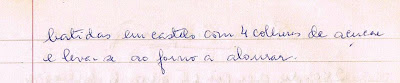 batidas em castelo com 4 colheres de açucar
e leva-se ao forno a alourar.